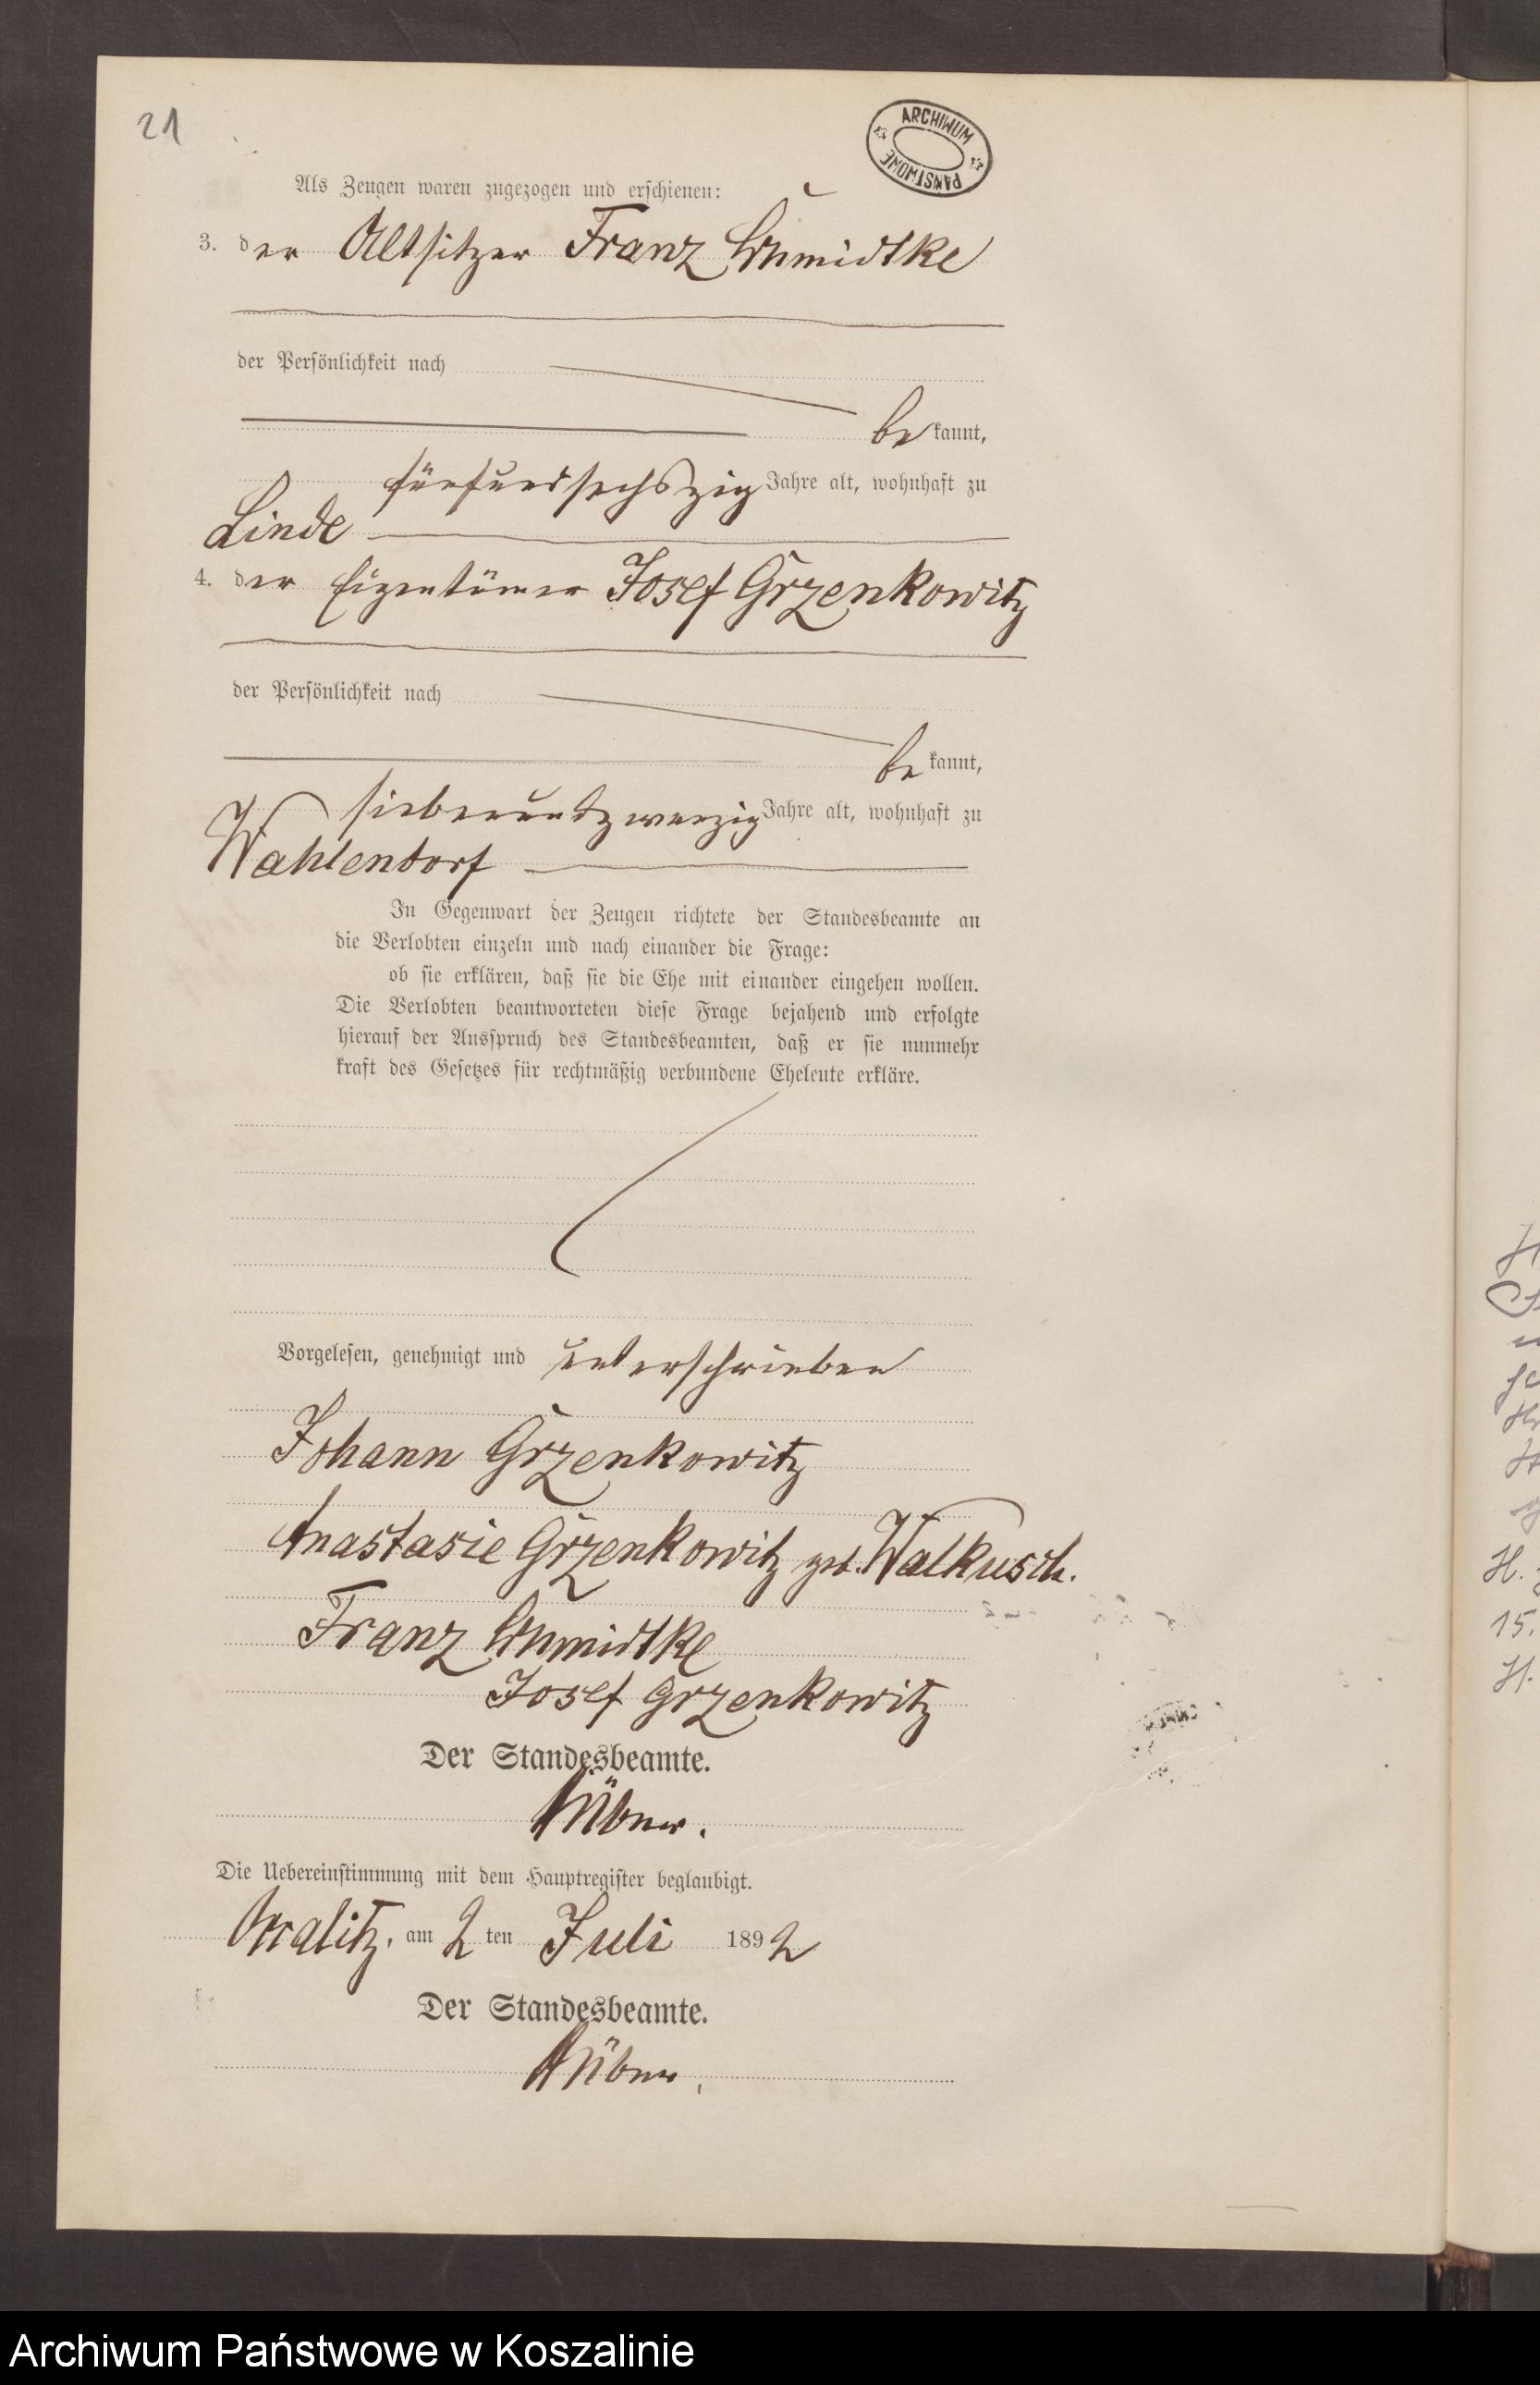 21
ARCHIWUM PAŃSTWOWE
Als Zeugen waren zugezogen und erschienen:
3. der Altsitzer Franz Schmidtke
der Persönlichkeit nach
bekannt,
fünfundsechszig Jahre alt, wohnhaft zu
Linde
4. der Eigentümer Josef Grzenkowitz
der Persönlichkeit nach
bekannt,
siebenundzwanzig Jahre alt, wohnhaft zu
Wahlendorf
In Gegenwart der Zeugen richtete der Standesbeamte an
die Verlobten einzeln und nach einander die Frage:
ob sie erklären, daß sie die Ehe mit einander eingehen wollen.
Die Verlobten beantworteten diese Frage bejahend und erfolgte
hierauf der Ausspruch des Standesbeamten, daß er sie nunmehr
kraft des Gesetzes für rechtmäßig verbundene Eheleute erkläre.
Vorgelesen, genehmigt und unterschrieben
Johann Grzenkowitz
Anastasie Grzenkowitz geb. Walkusch.
Franz Schmidtke
Josef Grzenkowitz
Der Standesbeamte.
Die Uebereinstimmung mit dem Hauptregister beglaubigt.
am 2ten Juli 1892
Der Standesbeamte.
H.
15.
H.
Archiwum Państwowe w Koszalinie